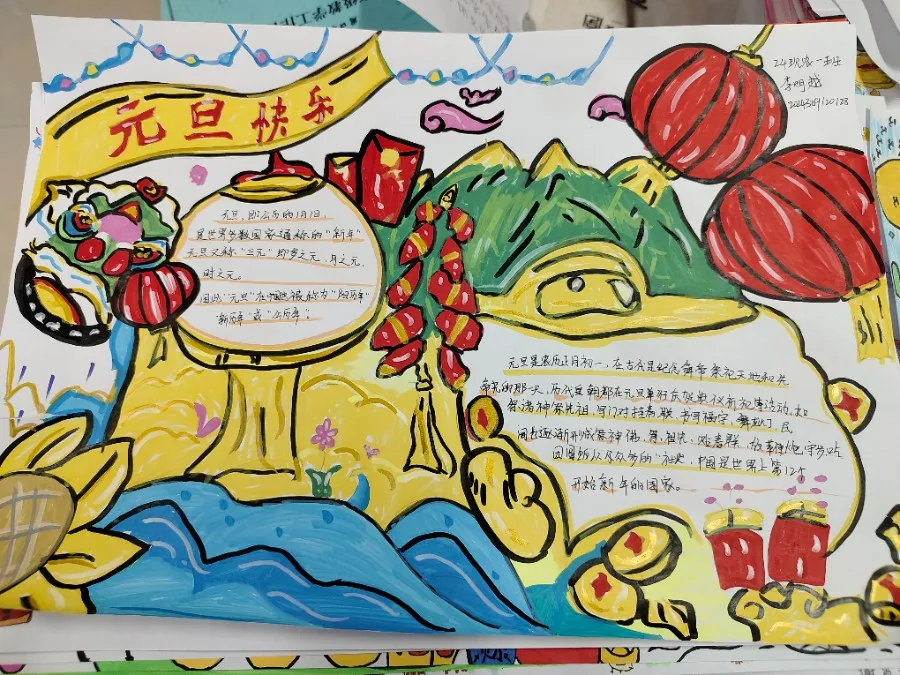 元旦快乐
24现农一五年
李明越
元旦,即公历的1月1日
是世界多数国家通称的“新年”
元旦又称“三元”即岁之元、月之元、
时之元。
因此“元旦”在中国也被称为“阳历年”
“新历年”或“公历年”。
元旦是农历正月初一,在古代是纪念舜帝祭祀天地和先
帝尧的那一天,历代皇朝都在元旦举行庆贺典仪祈祀等活动,如
祭诸神祭先祖,写门对挂春联,书写福字、舞龙灯,民
间也逐渐形成祭神佛、祭祖先、贴春联、放鞭炮、守岁、吃
团圆饭以及众多的“社火”,中国是世界上第12个
开始新年的国家。